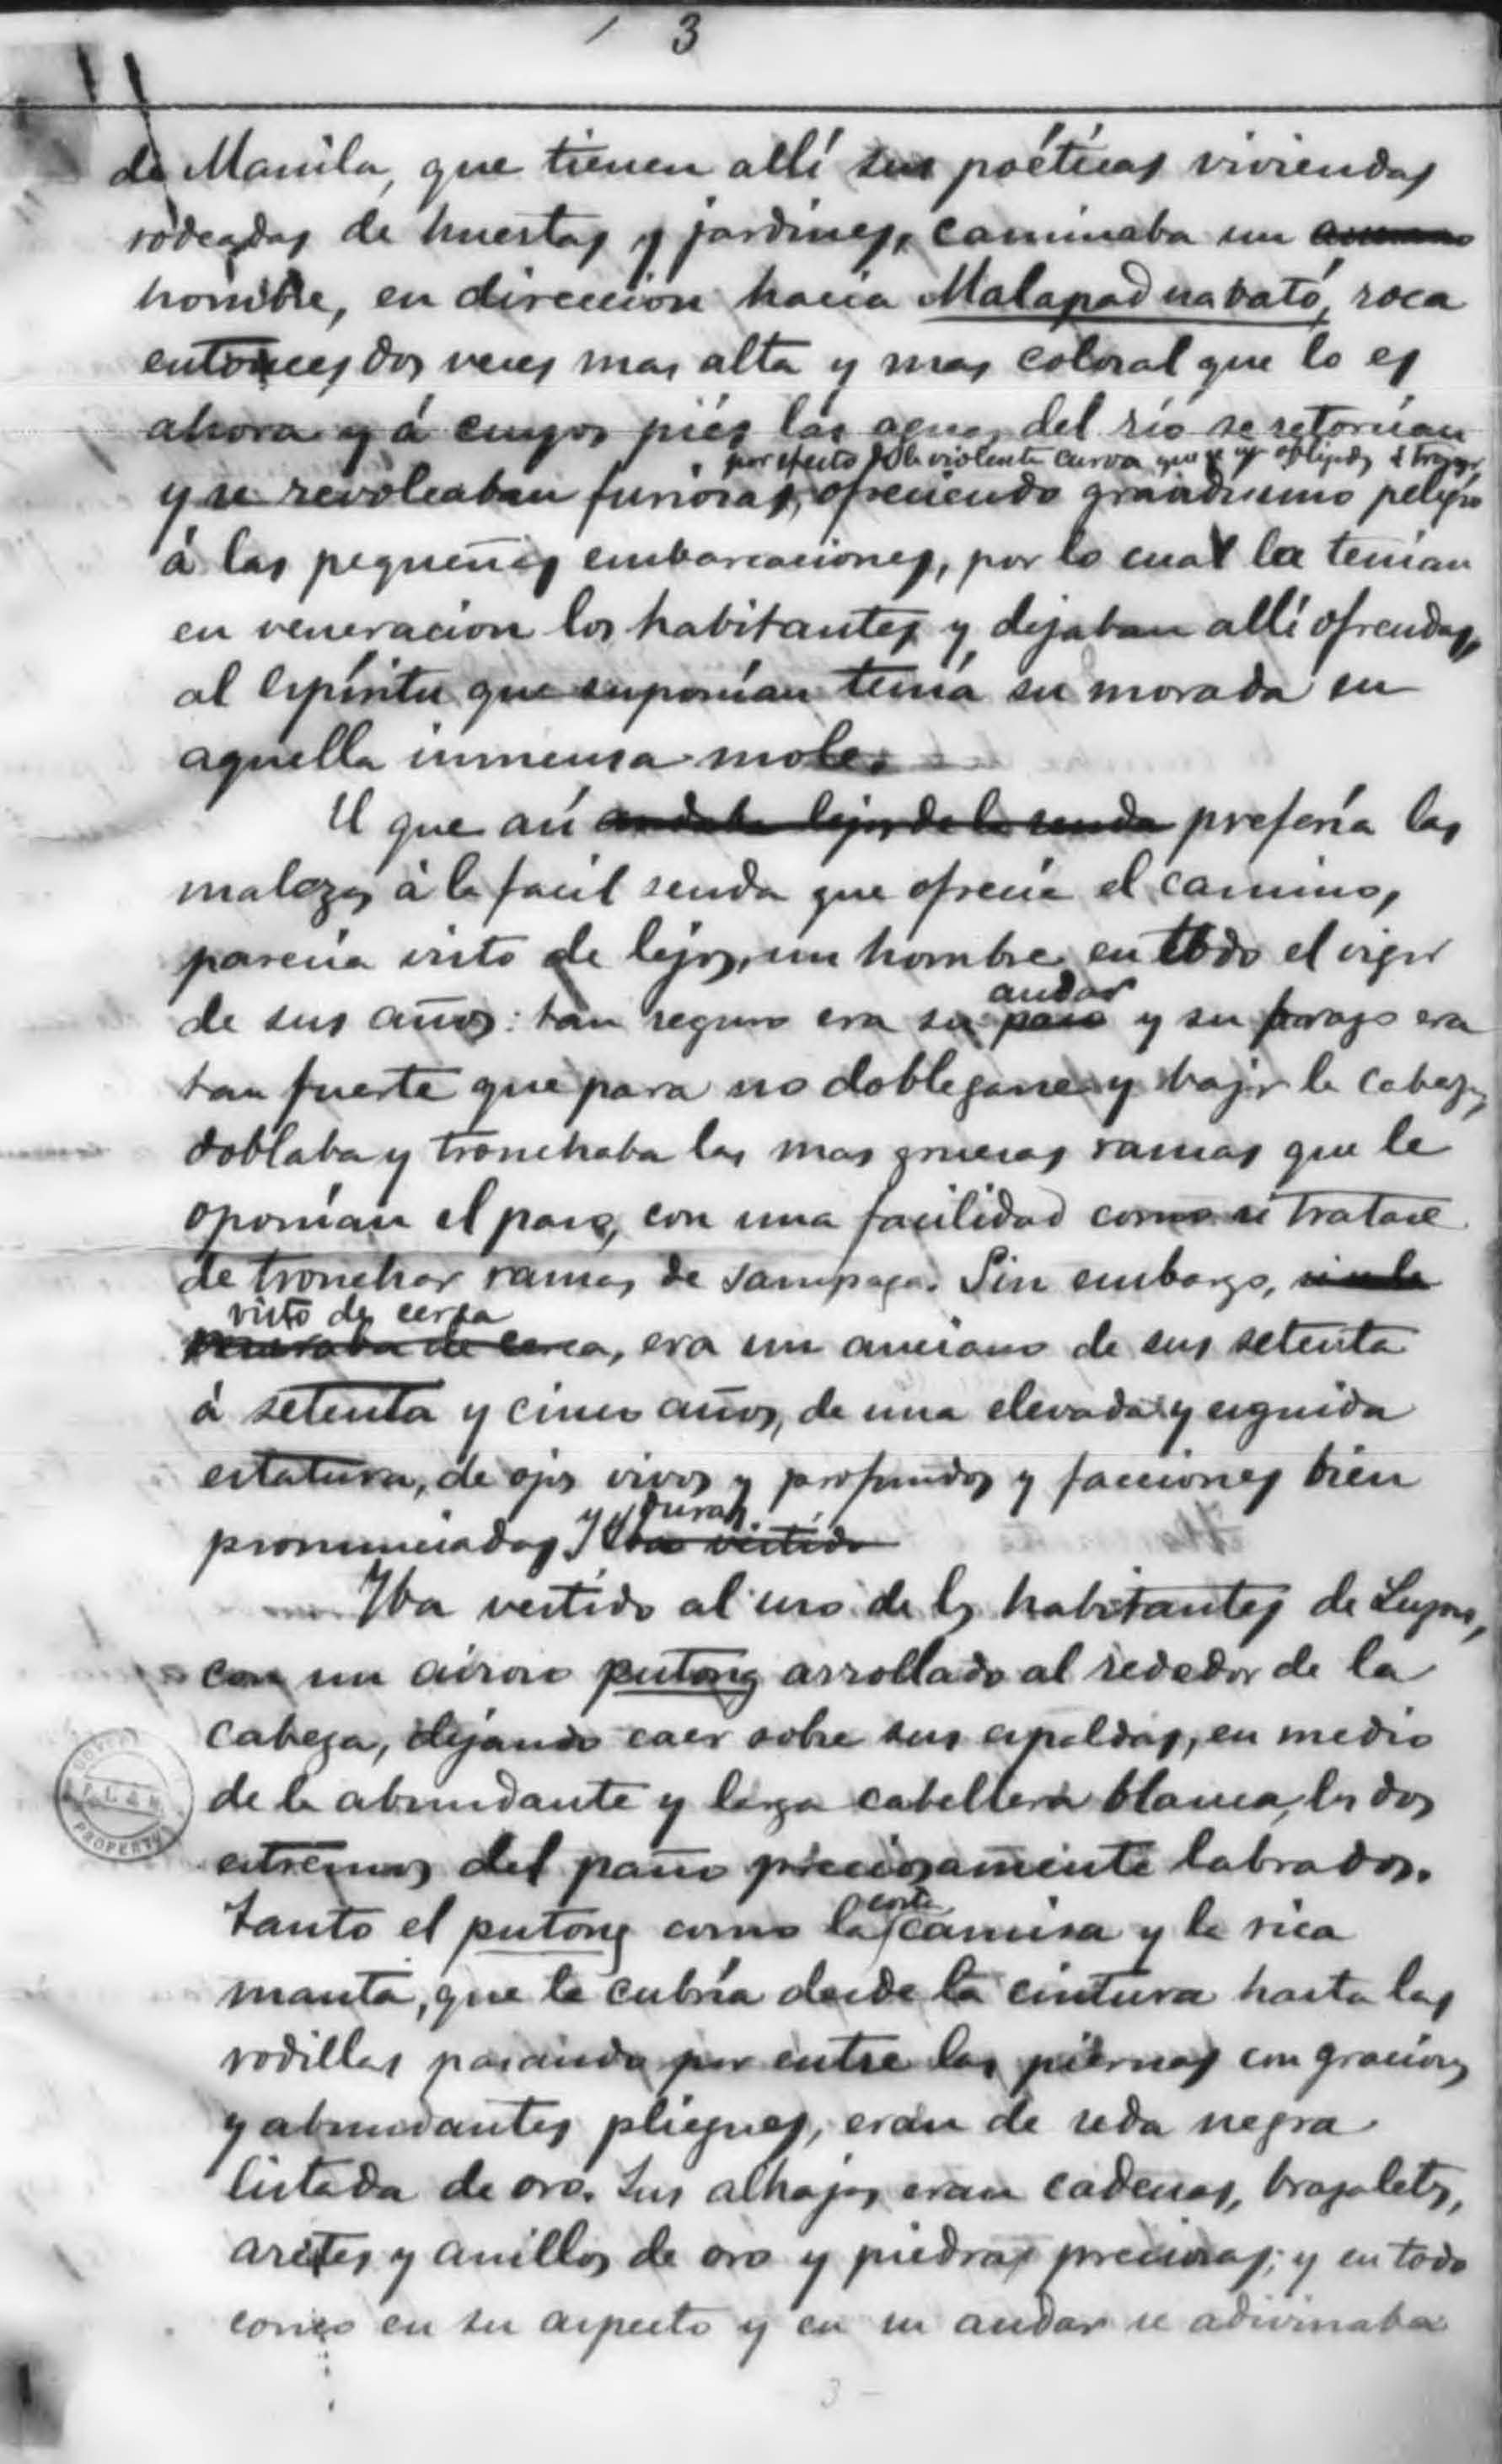 3
de Manila, que tienen allí sus poéticas viviendas
rodeadas de huertas y jardines, caminaba un
hombre, en direccion hacia Malapad na bató, roca
entonces dos veces mas alta y mas colosal que lo es
ahora y á cuyos piés las aguas del río se retorcian
por efecto de la violente curva que se ven obligadas á trazar
y se revolcaban furiosas, ofreciendo grandisimo peligro
á las pequeñas embarcaciones, por lo cual la tenian
en veneracion los habitantes y dejaban allí ofrendas,
al espíritu que suponían tenía su morada en
aquella inmensa mole.
El que así andaba lejos de la senda prefería las
malezas á la facil senda que ofrecia el camino,
parecia visto de lejos, un hombre en todo el vigor
andar
de sus años: tan seguro era su paso y su brazo era
tan fuerte que para no doblegarse y bajar la cabeza,
doblaba y tronchaba las mas gruesas ramas que le
oponían el paso, con una facilidad como si tratase
de tronchar ramas de sampaga. Sin embargo, si se le
visto de cerca
miraba de cerca, era un anciano de sus setenta
á setenta y cinco años, de una elevada y erguida
estatura, de ojos vivos y profundos y facciones bien
y duras.
pronunciadas Iba vestido
Iba vestido al uso de los habitantes de Luzon,
con un airoso putong arrollado al rededor de la
cabeza, dejando caer sobre sus espaldas, en medio
de la abundante y larga cabellera blanca, los dos
estremos del paño preciosamente labrados.
corta
Tanto el putong como la camisa y la rica
manta, que le cubría desde la cintura hasta las
rodillas pasando por entre las piernas con graciosos
y abundantes pliegues, eran de seda negra
listada de oro. Sus alhajas eran cadenas, brazaletes,
aretes y anillos de oro y piedras preciosas; y en todo
como en su aspecto y en su andar se adivinaba
PROPERTY
3